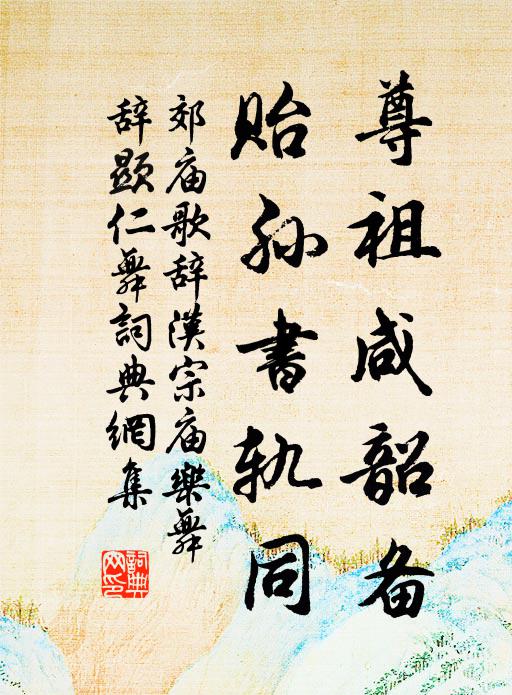 尊祖咸韶备
贻孙書轨同
郊庙歌辞漢宗庙樂舞
辞顯仁舞詞典網集
詞典
网印